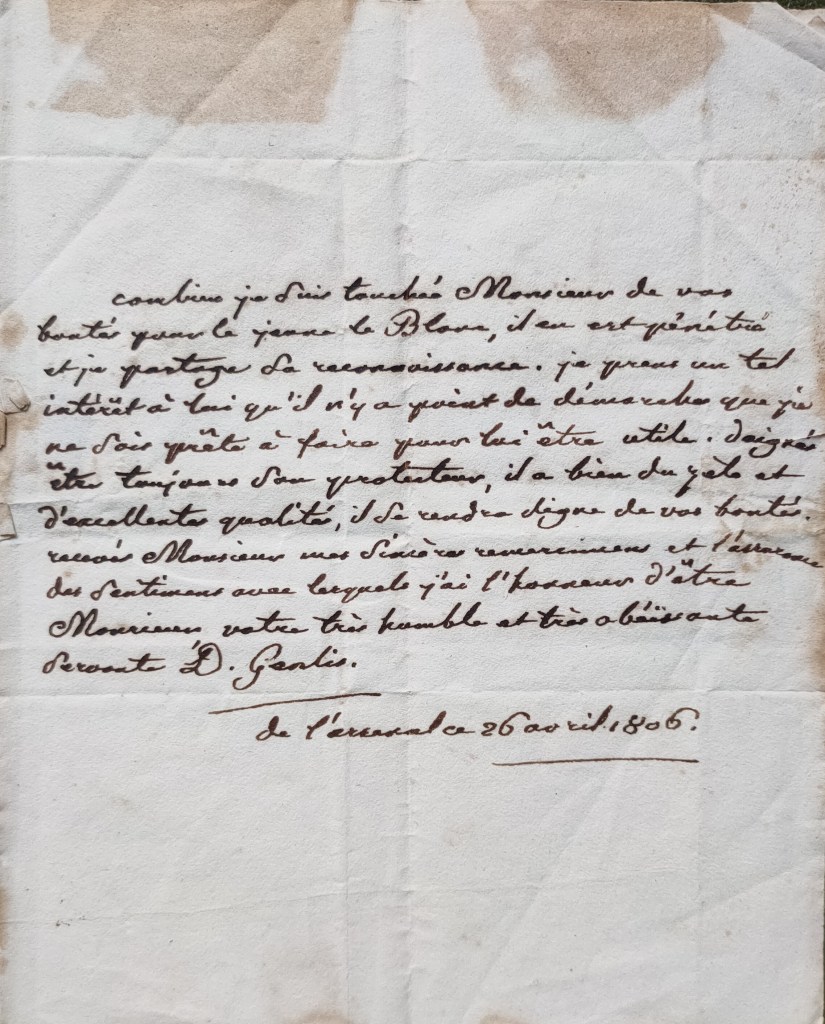 combien je suis touchée Monsieur de vos
bontés pour le jeune le Blanc, il en est pénétré
et je partage sa reconnoissance. je prens un tel
intérêt à lui qu'il n'y a point de démarches que je
ne sois prête à faire pour lui être utile. daignés
être toujours son protecteur, il a bien du zèle et
d'excellentes qualités, il se rendra digne de vos bontés.
recevés Monsieur mes sincères remercimens et l'assurance
des sentimens avec lesquels j'ai l'honneur d'être
Monsieur votre très humble et très obéissante
servante D. Genlis.
de l'arsenal ce 26 avril 1806.